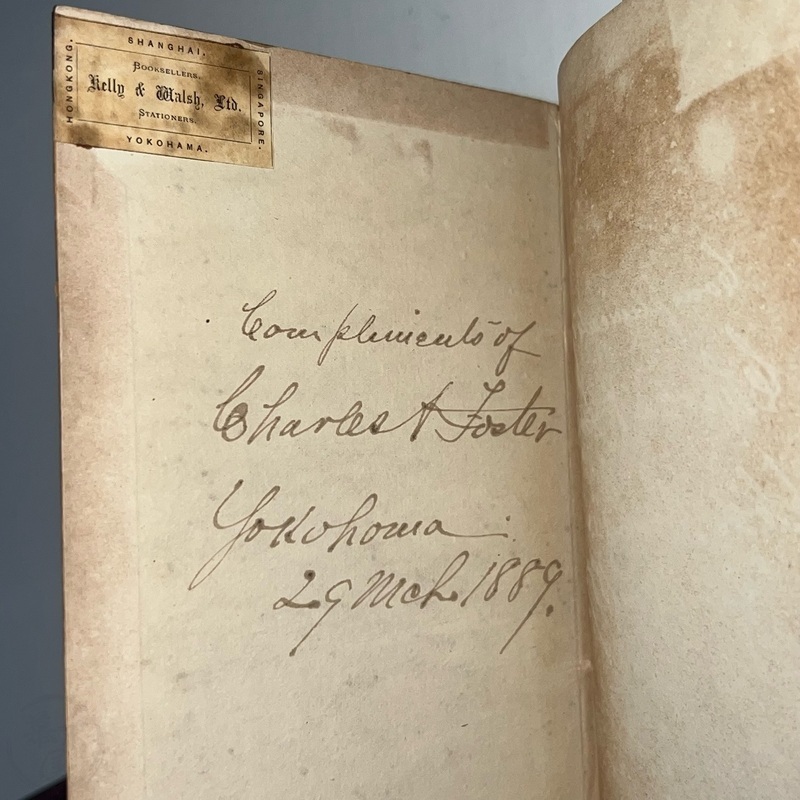 SHANGHAI.
HONGKONG.
BOOKSELLERS.
Kelly & Walsh, Ltd.
STATIONERS.
SINGAPORE.
YOKOHAMA.
Compliments of
Charles A Foster
Yokohoma
29 Mch. 1889.